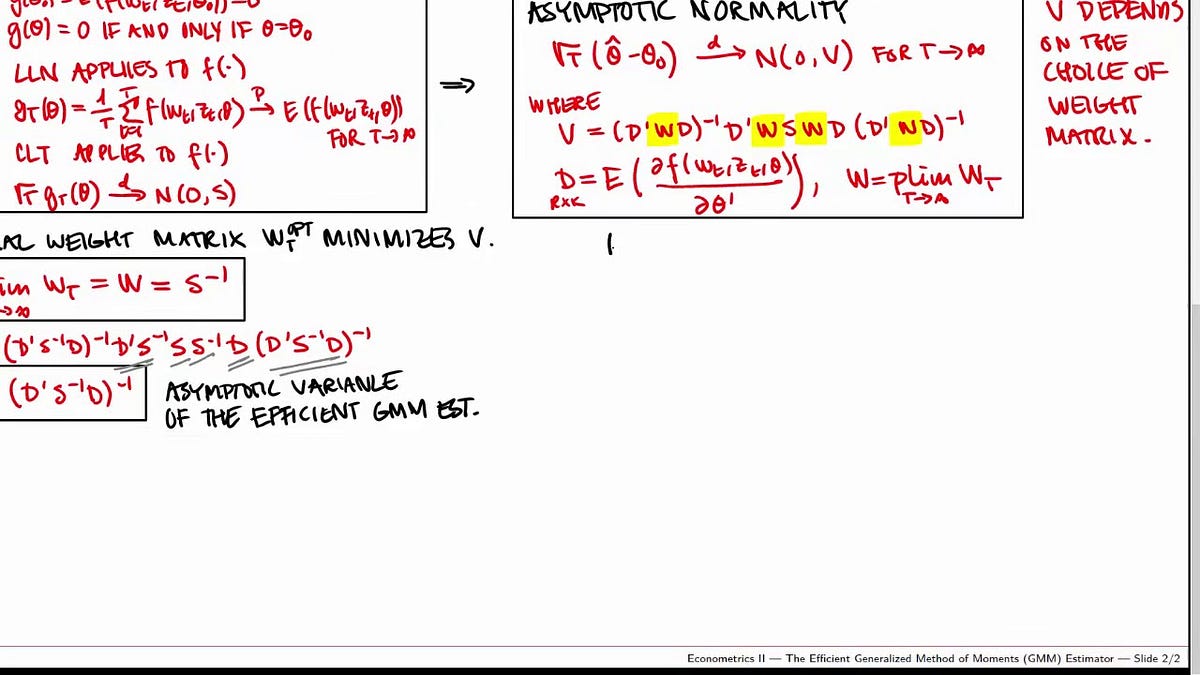 g(θ) = 0 IF AND ONLY IF θ=θ₀
LLN APPLIES TO f(·)
g_T(θ) = 1/T Σ_{t=1}^T f(w_t,z_t,θ) →^P E(f(w_t,z_t,θ))
FOR T→∞
CLT APPLIES TO f(·)
√T g_T(θ) →^d N(0,S)
ASYMPTOTIC NORMALITY
√T (θ̂ - θ₀) →^d N(0,V) FOR T→∞
WHERE
V = (D'WD)⁻¹ D'WSWD (D'WD)⁻¹
D = E(∂f(w_t,z_t,θ)/∂θ'), W = plim W_T
R×K T→∞
V DEPENDS
ON THE
CHOICE OF
WEIGHT
MATRIX.
WEIGHT MATRIX W_T^OPT MINIMIZES V.
W_T = W = S⁻¹
(D'S⁻¹D)⁻¹D'S⁻¹SS⁻¹D(D'S⁻¹D)⁻¹
(D'S⁻¹D)⁻¹
ASYMPTOTIC VARIANCE
OF THE EFFICIENT GMM EST.
Econometrics II — The Efficient Generalized Method of Moments (GMM) Estimator — Slide 2/2